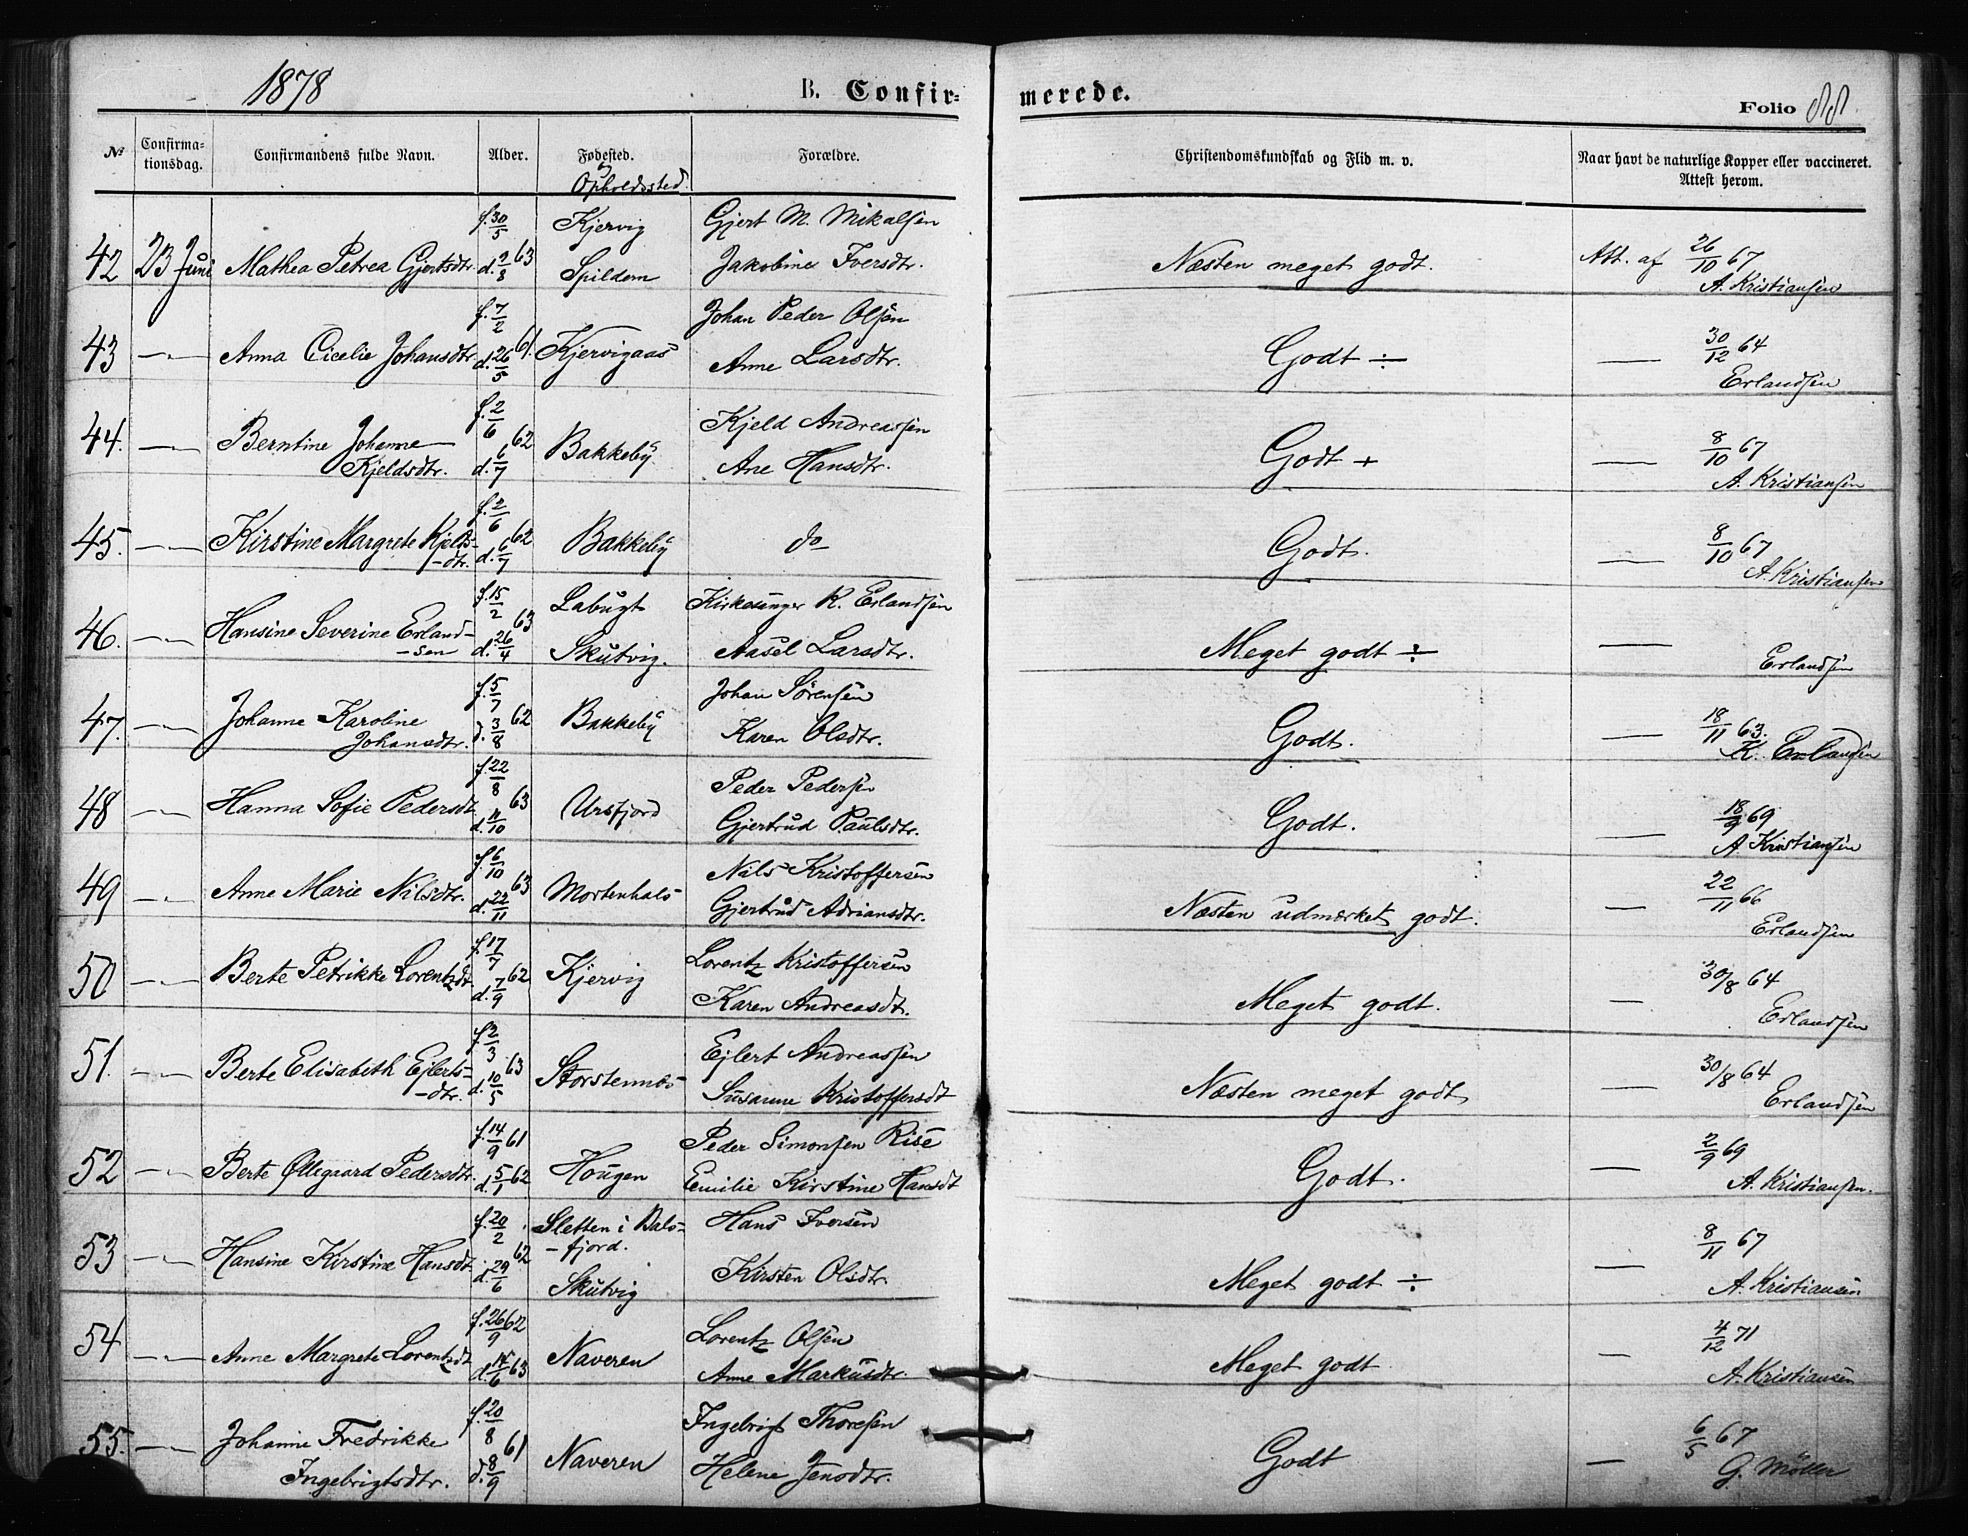 1878
B. Confir-
merede.
Folio 88.
№
Confirma-
tionsdag.
Confirmandens fulde Navn.
Alder.
Fødested.
Opholdssted.
Forældre.
Christendomskundskab og Flid m. v.
Naar havt de naturlige Kopper eller vaccineret.
Attest herom.
42 23 Juni Mathea Petrea Gjertsdtr. f. 30/5 d. 2/8 63 Kjervig Spildern Gjert M. Mikalsen Jakobine Iversdtr. Næsten meget godt. Att. af 26/10 67 A. Kristiansen
43 —„— Anna Cicelie Johansdtr. f. 7/2 d. 26/5 61. Kjervigaas Johan Peder Olsen Anne Larsdtr. Godt ÷ — 30/12 64 Erlandsen
44. —„— Berntine Johanne Kjeldsdtr. f. 2/6 d. 6/7 62 Bakkeby Kjeld Andreassen Ane Hansdtr. Godt + — 8/10 67 A. Kristiansen
45. —„— Kirstine Margrete Kjelds-dtr. f. 2/6 d. 6/7 62 Bakkeby do Godt. — 8/10 67 A. Kristiansen
46. —„— Hansine Severine Erland-sen f. 15/2 d. 26/4 63 Labugt Skutvig. Kirkesanger K. Erlandsen Aasel Larsdtr. Meget godt ÷ — Erlandsen
47. —„— Johanne Karoline Johansdtr. f. 5/7 d. 3/8 62 Bakkeby Johan Sørensen Karen Olsdtr. Godt. — 18/11 63. K. Erlandsen
48 —„— Hanna Sofie Pedersdt f. 22/8 d. 11/10 63 Ursfjord Peder Pedersen Gjertrud Paulsdtr. Godt. — 18/9 69 A. Kristiansen
49 —„— Anne Marie Nilsdtr. f. 6/10 d. 22/11 63 Mortenhals Nils Kristoffersen Gjertrud Adriansdtr. Næsten udmærket godt. — 22/11 66 Erlandsen
50 —„— Berte Petrikke Lorentzdt f. 17/7 d. 7/9 62 Kjervig Lorentz Kristoffersen Karen Andreasdt. Meget godt. — 30/8 64 Erlandsen
51. —„— Berte Elisabeth Ejlerts-dtr. f. 2/3 d. 10/5 63 Storstennæs Ejlert Andreassen Susanne Kristoffersdt Næsten meget godt — 30/8 64 Erlandsen
52 —„— Berte Øllegaard Pedersdtr. f. 14/9 61 d. 5/1 62 Hougen Peder Simonsen Rise Emilie Kirstine Hansdt Godt. — 2/9 69 A. Kristiansen.
53 —„— Hansine Kirstine Hansdt f. 20/2 d. 29/6 62 Sletten i Bals-fjord. Skutvig Hans Iversen Kirsten Olsdtr Meget godt ÷ — 8/11 67 A. Kristiansen
54 —„— Anne Margrete Lorentzdt f. 26/9 62 d. 14/6 63 Naveren Lorentz Olsen Anne Markusdtr. Meget godt — 4/12 71 A. Kristiansen
55. —„— Johanne Fredrikke Ingebrigtsdtr. f. 20/8 d. 8/9 61 Naveren Ingebrigt Thoresen Helene Jensdtr. Godt — 6/5 67 G. Møller